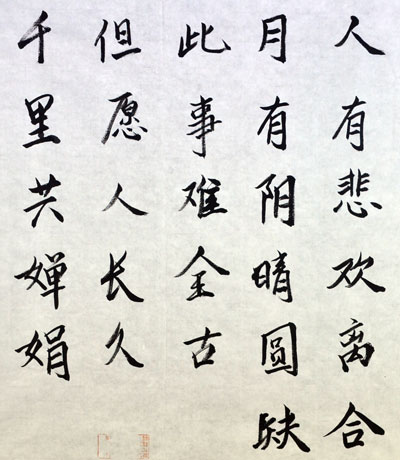 人有悲欢离合
月有阴晴圆缺
此事难全古
但愿人长久
千里共婵娟